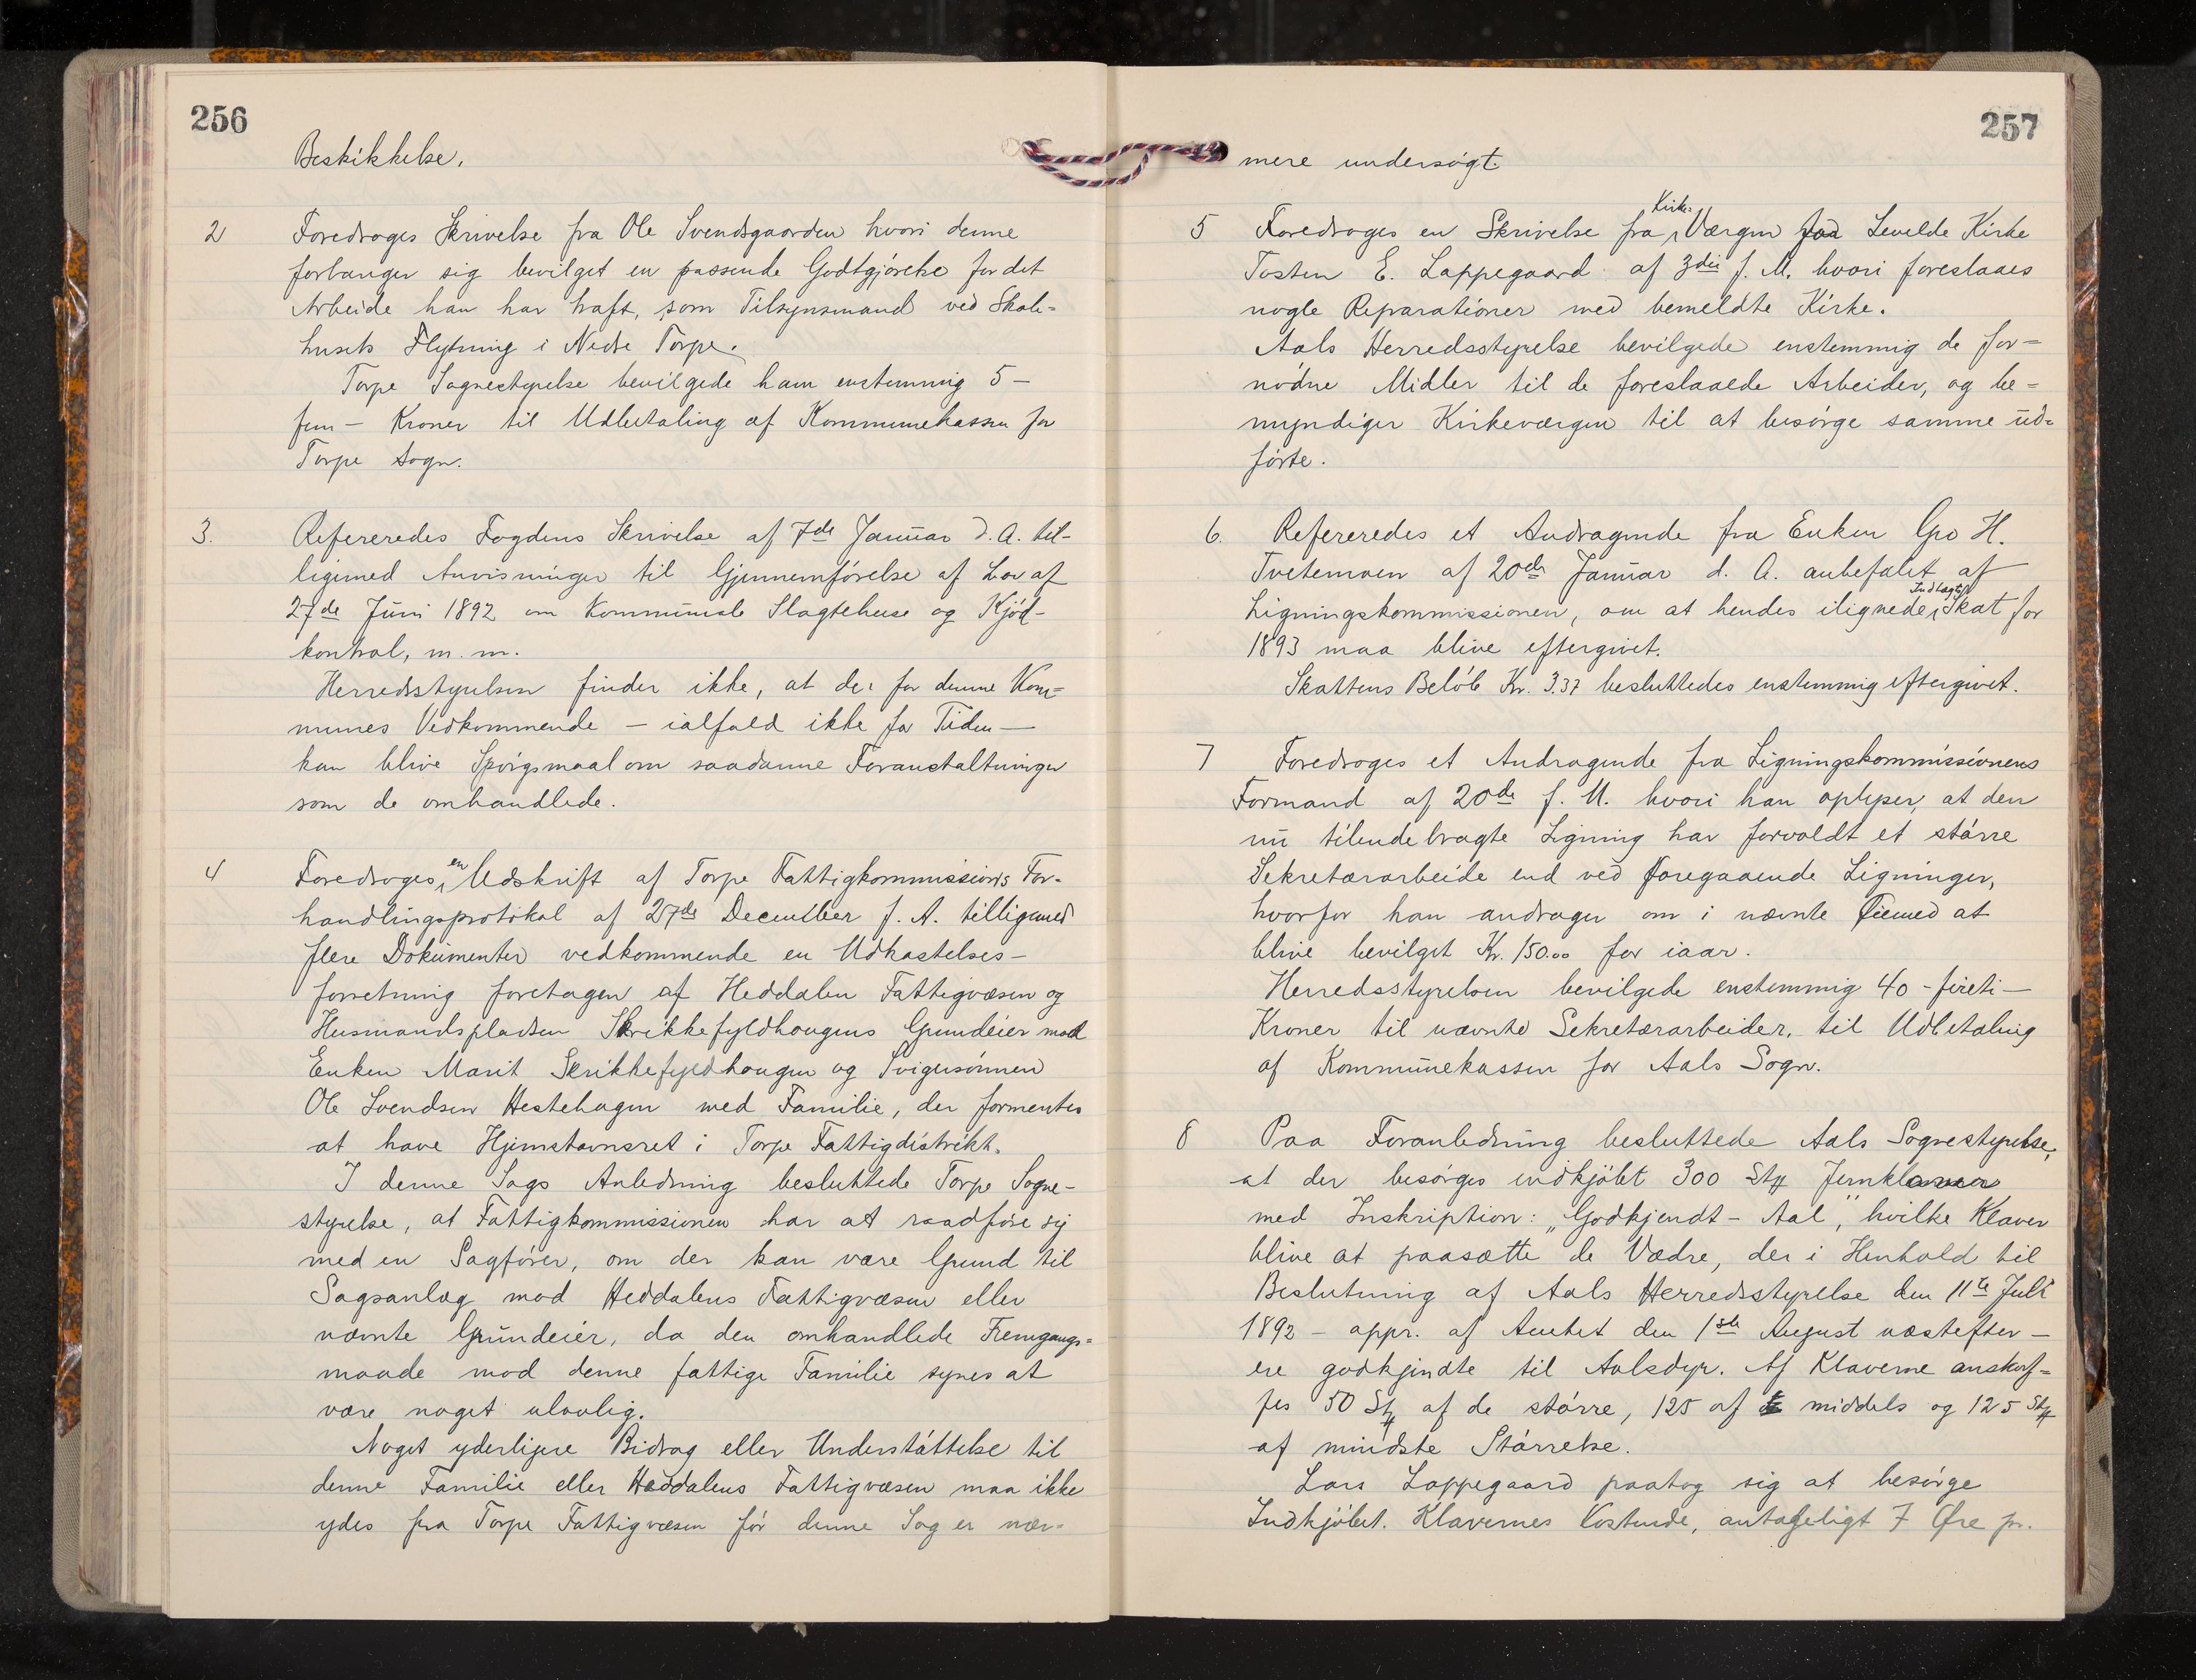 256
Beskikkelse.
2 Foredroges Skrivelse fra Ole Svendsgaarden hvori denne
forlanger sig bevilget en passende Godtgjörelse for det
Arbeide han har haft, som Tilsynsmand ved Skole-
husets Flytning i Nedre Torpe.
Torpe Sognestyrelse bevilgede ham enstemmig 5 -
fem - Kroner til Udbetaling af Kommunekassen for
Torpe Sogn.
3. Refereredes Fogdens Skrivelse af 7de Januar d. A. til-
ligemed Anvisninger til Gjennemförelse af Lov af
27de Juni 1892 om Kommunale Slagtehuse og Kjöd-
kontrol, m. m.
Herredsstyrelsen finder ikke, at der for denne Kom=
munes Vedkommende - ialfald ikke for Tiden -
kan blive Spörgsmaal om saadanne Foranstaltninger
som de omhandlede.
4 Foredroges en Udskrift af Torpe Fattigkommissions For-
handlingsprotokol af 27de December f. A. tilligemed
flere Dokumenter vedkommende en Udkastelses-
forretning foretagen af Heddalen Fattigvæsen og
Husmandspladsen Skrikkefyldhougens Grundeier mod
Enken Marit Skrikkefyldhougen og Svigersönnen
Ole Svendsen Hestehagen med Familie, der formentes
at have Hjemstavnsret i Torpe Fattigdistrikt.
I denne Sags Anledning besluttede Torpe Sogne-
styrelse, at Fattigkommissionen har at raadföre sig
med en Sagförer, om der kan være Grund til
Sagsanlæg mod Heddalens Fattigvæsen eller
nævnte Grundeier, da den omhandlede Fremgangs=
maade mod denne fattige Familie synes at
være noget ulovlig.
Noget yderligere Bidrag eller Understöttelse til
denne Familie eller Heddalens Fattigvæsen maa ikke
ydes fra Torpe Fattigvæsen för denne Sag er nær=
257
mere undersögt.
5 Foredroges en Skrivelse fra Kirke-Værgen for Levelde Kirke
Tosten E. Lappegaard af 3die f. M. hvori foreslaaes
nogle Reparationer med bemeldte Kirke.
Aals Herredsstyrelse bevilgede enstemmig de for=
nödne Midler til de foreslaaede Arbeider, og be=
myndiger Kirkeværgen til at besörge samme ud=
förte.
6. Refereredes et Andragende fra Enken Gro H.
Tvetemoen af 20de Januar d. A. anbefalet af
Ligningskommissionen, om at hendes ilignede Indtægts Skat for
1893 maa blive eftergivet.
Skattens Belöb Kr. 3.37 besluttedes enstemmig eftergivet.
7 Foredroges et Andragende fra Ligningskommissionens
Formand af 20de f. M. hvori han oplyser, at den
nu tilendebragte Ligning har forvoldt et större
Sekretærarbeide end ved foregaaende Ligninger,
hvorfor han andrager om i nævnte Øiemed at
blive bevilget Kr. 150.00 for iaar.
Herredsstyrelsen bevilgede enstemmig 40 - fireti -
Kroner til nævnte Sekretærarbeider, til Udbetaling
af Kommunekassen for Aals Sogn.
8 Paa Foranledning besluttede Aals Sognestyrelse,
at der besörges indkjöbt 300 Stk Jernklaver
med Inskription: „Godkjendt - Aal", hvilke Klaver
blive at paasætte de Vædre, der i Henhold til
Beslutning af Aals Herredsstyrelse den 11te Juli
1892 - appr. af Amtet den 1ste August næstefter -
ere godkjendte til Avlsdyr. Af Klaverne anskaf=
fes 50 Stk af de större, 125 af middels og 125 Stk
af mindste Störrelse.
Lars Lappegaard paatog sig at besörge
Indkjöbet. Klavernes Kostende, antageligt 7 Øre pr.